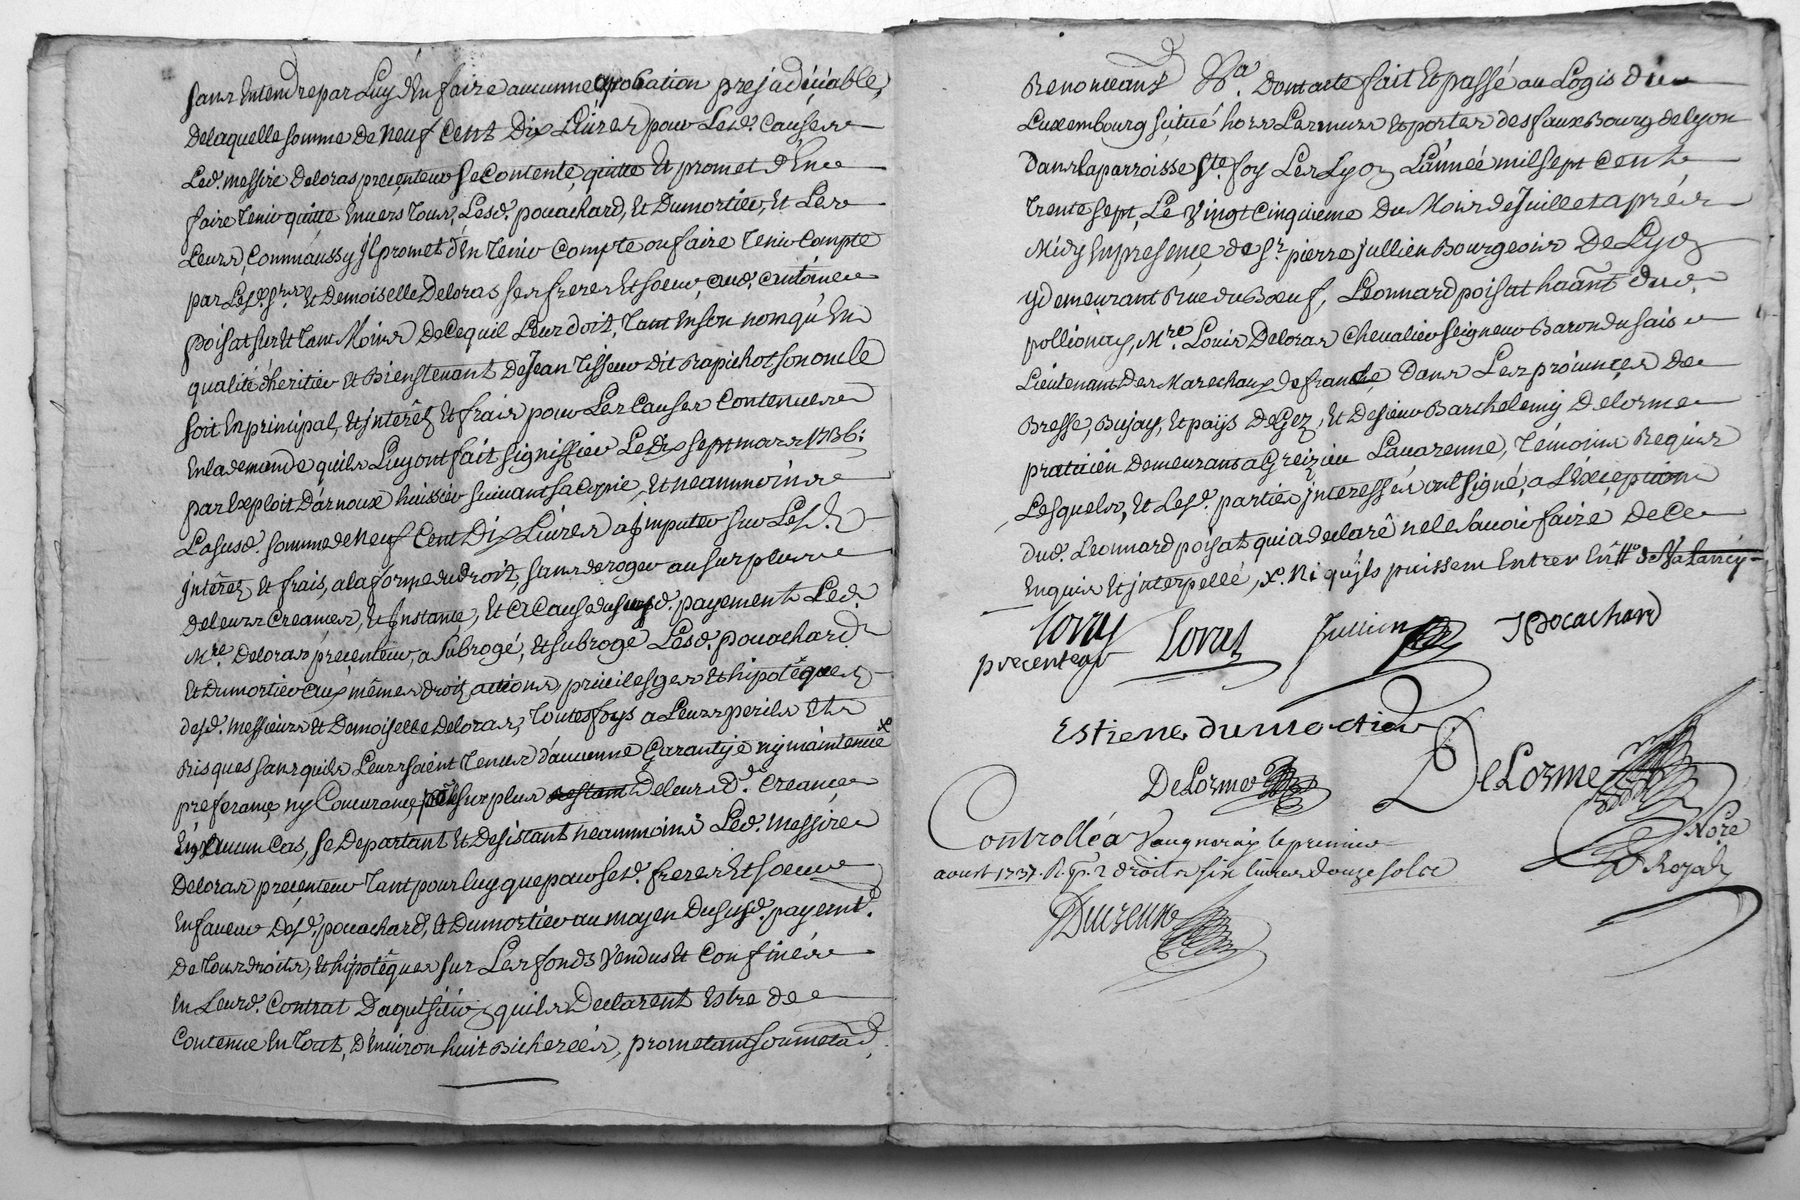 sans Entendre par Luy d'En faire aucunne aprobation prejudiciable,
de laquelle somme de neuf Cent Dix Livres pour Lesd. Causes
Led. messire Deloras precenteur se Contente, quitte Et promet d'En
faire tenir quitte Envers tous, Lesd. pouachard, Et Dumortier, Et Les
Leurs, Comm'aussy Il promet d'En tenir Compte ou faire tenir Compte
par Lesd. srs. Et Demoiselle Deloras ses freres Et soeur, aud. antoine
poisat sur Et tant Moins de Ce quil Leur doit, tant En son nom qu'En
qualité d'heritier Et Bienstenant de Jean tisseur dit Rapichot son oncle
soit En principal, Et Interêts Et frais pour Les Causes Contenues
En la demande quils Luy ont fait signiffier Le Dix sept mars 1736:
par Exploit D'arnoux huissier suivant sa Copie, Et neanmoins
La susd. somme de neuf Cent Dix Livres a Imputer sur Lesd.
Interêts Et frais, a la forme du Droit, sans deroger au surplus
de leurs Creances, Et Instance, Et a Cause du susd. payement Led.
Mre. Deloras precenteur, a subrogé, Et subroge Lesd. pouachard
Et Dumortier aux mêmes droits, actions, privileges Et hipotêques
desd. messieurs Et Demoiselle Deloras, toutesfoys a Leurs perils Et
Risques sans quils Leurs soient tenus d'aucunne Garantye ny maintenue x
preferance, ny Concurance, surplus restant de leursd. Creance
En aucun Cas, se Departant Et Desistant neanmoins Led. messire
Deloras precenteur tant pour luy que pour sesd. freres Et soeur
En faveur Desd. pouachard, Et Dumortier au moyen Du susd. payemt.
de tous droits, Et hipotêques sur Les fonds Vendus Et Confinés
En Leurd. Contrat D'aquisition quils Declarent Estre de
Contenue En tout, D'Environ huit Bicherées, prometant soumetant,
Renonceant &a. Dont acte fait Et passé au Logis du
Luxembourg situé hors Les murs Et portes des fauxBourg de Lyon
Dans la parroisse Ste. foy Les Lyon L'année mil sept Cent
trente sept, Le Vingt Cinquieme Du Mois de Juillet aprés
Midy En presence de Sr. pierre Jullien Bourgeois De Lyon
y demeurant Rue du Bœuf, Leonnard poisat haânt dud.
pollionay, Mre. Louis Deloras Chevalier seigneur Baron du sais
Lieutenant Des Marechaux de france Dans Les provinces De
Bresse, Bujay, Et païs De Gez, Et De sieur Barthelemy Delorme
praticien Demeurant a Greizieu Lavarenne, témoins Requis
Lesquels, Et Lesd. parties Interessés ont signé, a L'exception
dud. Leonnard poisat qui a declaré ne le scavoir faire de Ce
Enquis Et interpellé, x. Ni qu'ils puissent Entrer En
Loras
precenteur Loras Jullien JPocachard
Estiene dumortier
DeLorme DeLorme
Nore
Royal
Controllé a Vaugneray le premier
aoust 1737. R. pr. droits six livres douze sols
Ducreux